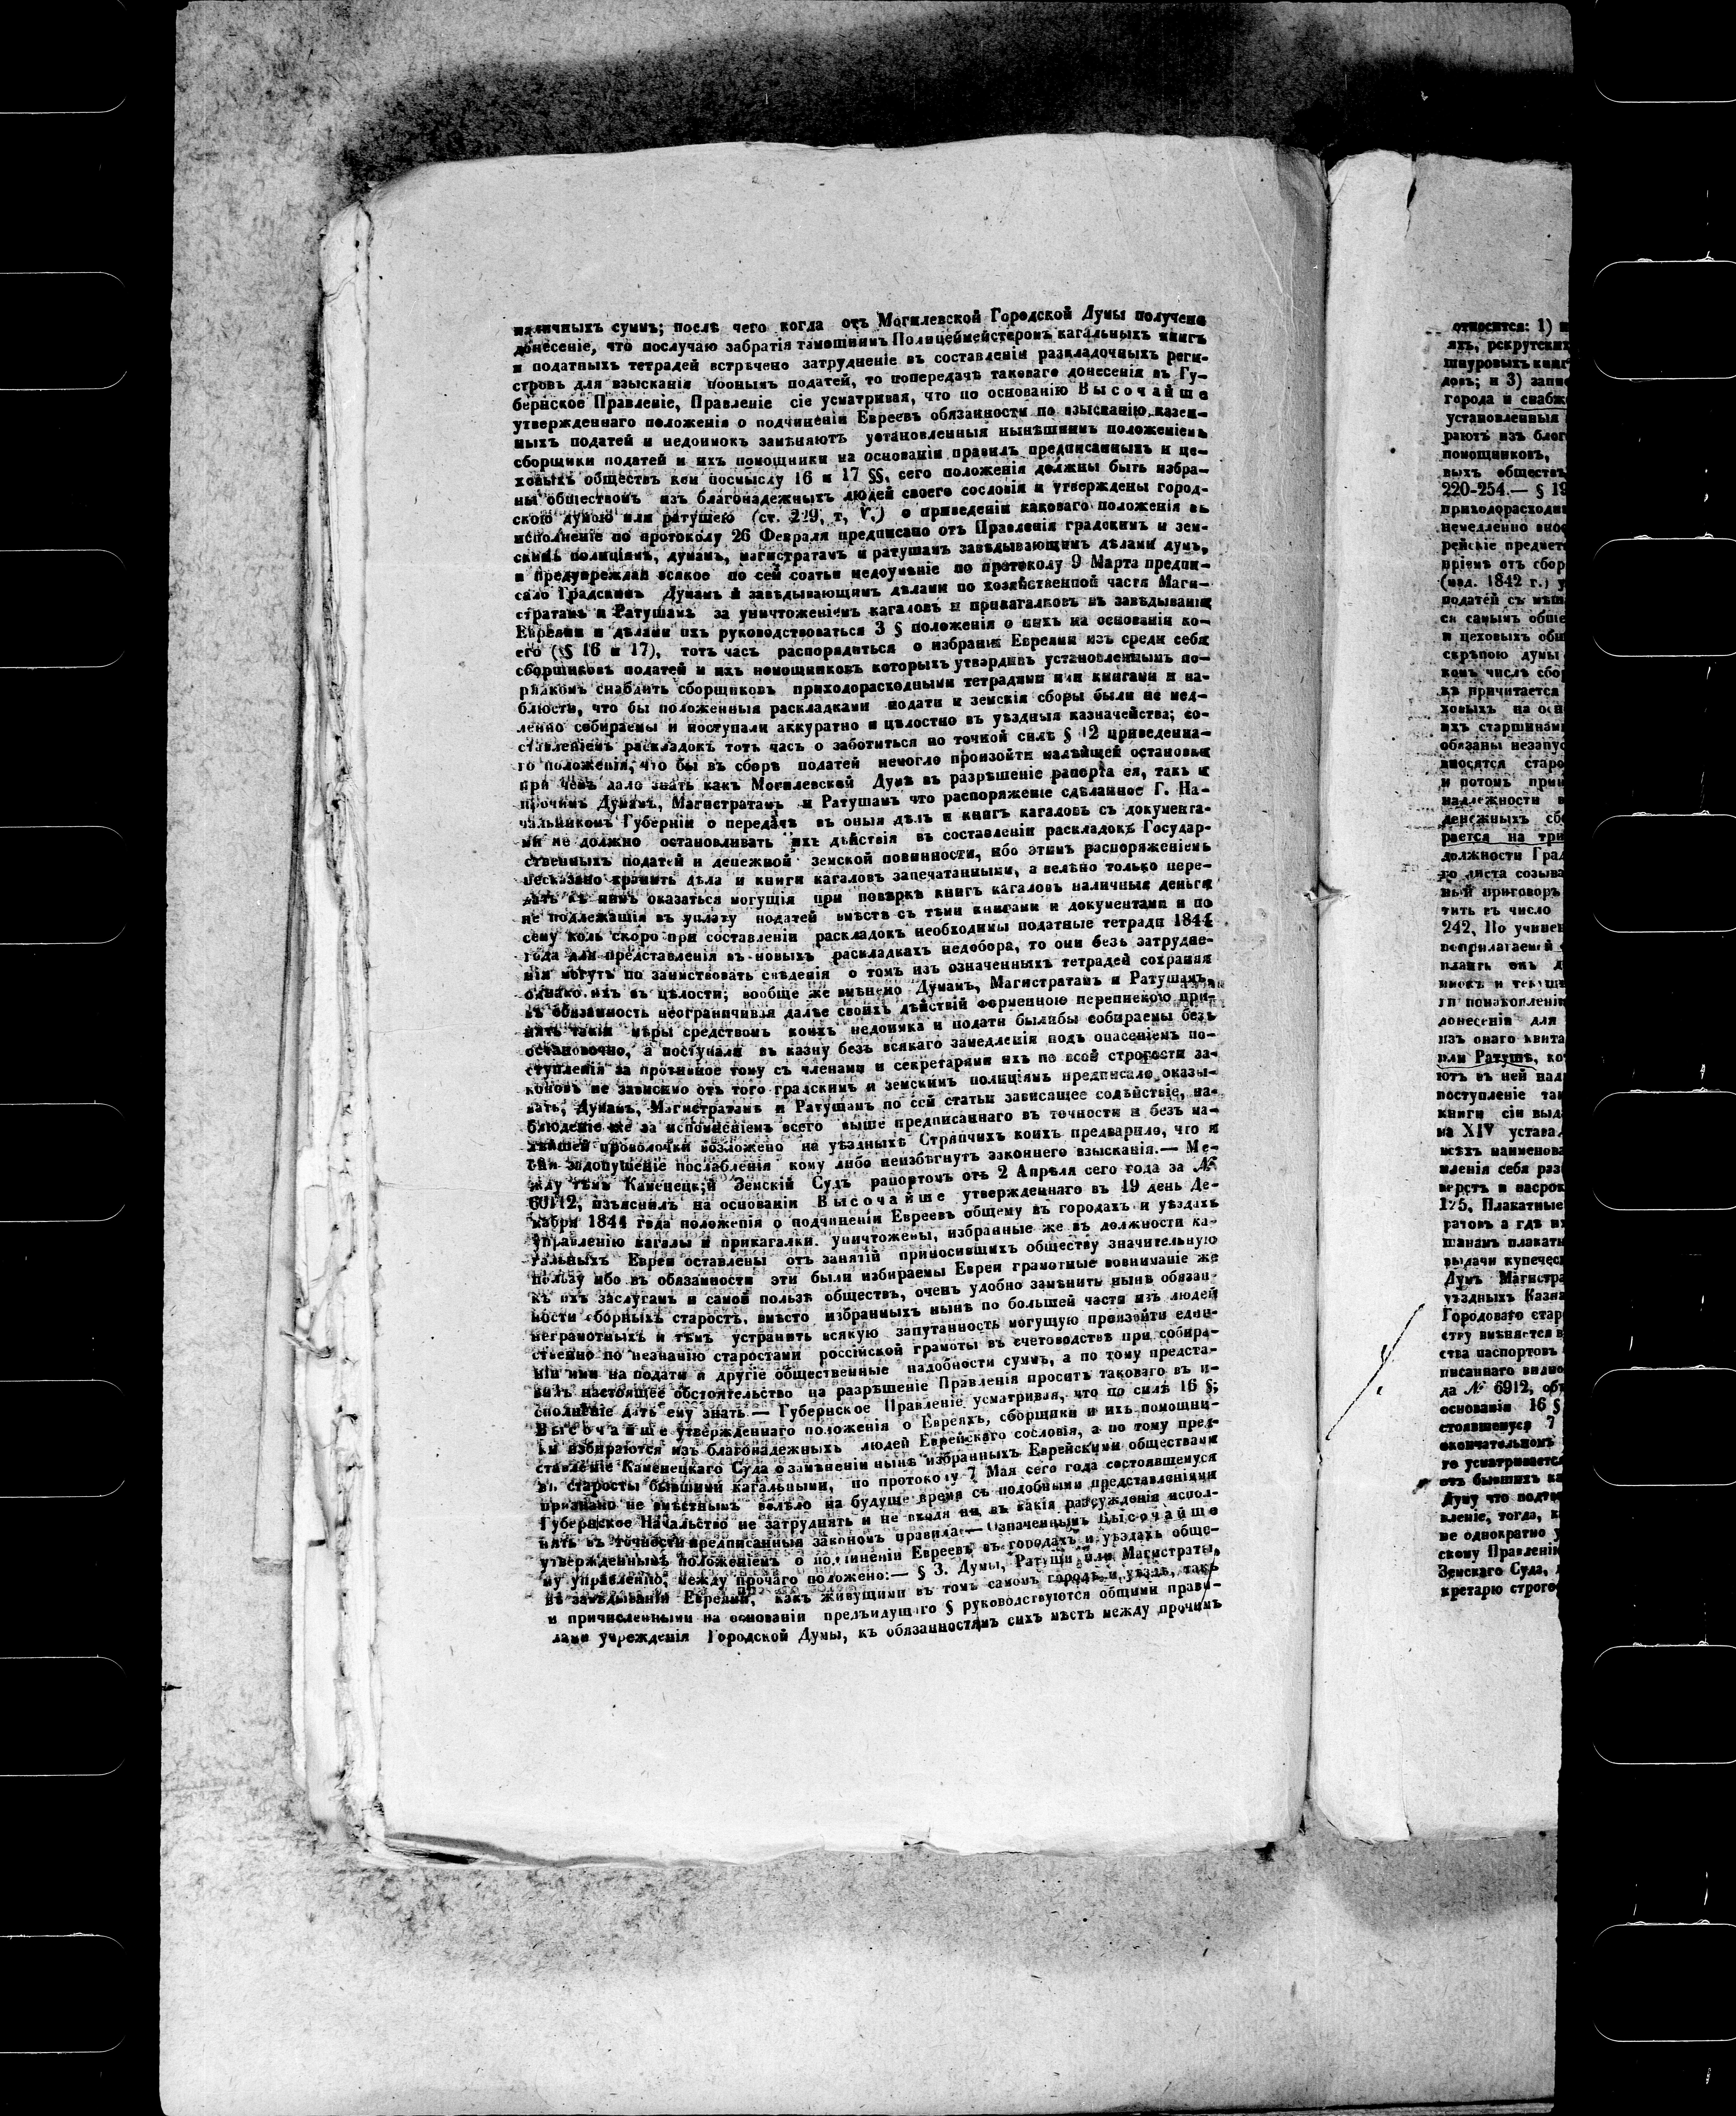 наличныхъ суммъ; послѣ чего когда отъ Могилевской Городской Думы получено
донесеніе, что послучаю забратія тамошнимъ Полицеймейстеромъ кагальныхъ книгъ
и податныхъ тетрадей встрѣчено затрудненіе въ составленіи раскладочныхъ реги-
стровъ для взысканія поонымъ податей, то попередачѣ таковаго донесенія въ Гу-
бернское Правленіе, Правленіе сіе усматривая, что по основанію Высочайше
утвержденнаго положенія о подчиненіи Евреевъ обязанности по взысканію казен-
ныхъ податей и недоимокъ замѣняютъ установленныя нынѣшнимъ положеніемъ
сборщики податей и ихъ помощники на основаніи правилъ предписанныхъ и це-
ховыхъ обществъ кои посмыслу 16 и 17 §§, сего положенія должны быть избра-
ны обществомъ изъ благонадежныхъ людей своего сословія и утверждены город-
скою думою или ратушею (ст. 229, т, V,) о приведеніи каковаго положенія въ
исполненіе по протоколу 26 Февраля предписано отъ Правленія градскимъ и зем-
скимъ полиціямъ, думамъ, магистратамъ и ратушамъ завѣдывающимъ дѣлами думъ,
и предупреждая всякое по сей статьи недоумѣніе по протоколу 9 Марта предпи-
сало Градскимъ Думамъ и завѣдывающимъ дѣлами по хозяйственной части Маги-
стратамъ и Ратушамъ за уничтоженіемъ кагаловъ и прикагалковъ въ завѣдываніи
Евреями и дѣлами ихъ руководствоваться 3 § положенія о нихъ на основаніи ко-
его (§§ 16 и 17), тотъ часъ распорядиться о избраніи Евреями изъ среди себя
сборщиковъ податей и ихъ помощниковъ которыхъ утвердивъ установленнымъ по-
рядкомъ снабдить сборщиковъ приходорасходными тетрадями или книгами и на-
блюсти, что бы положенныя раскладками подати и земскія сборы были не мед-
ленно собираемы и поступали аккуратно и цѣлостно въ уѣздныя казначейства; со-
ставленіемъ раскладокъ тотъ часъ о заботиться по точной силѣ § 12 приведенна-
го положенія, что бы въ сборѣ податей немогло произойти малѣйшей остановки
при чемъ дало знать какъ Могилевской Думѣ въ разрѣшеніе рапорта ея, такъ и
прочимъ Думамъ, Магистратамъ и Ратушамъ что распоряженіе сдѣланное Г. На-
чальникомъ Губерніи о передачѣ въ оныя дѣлъ и книгъ кагаловъ съ документа-
ми не должно остановливать ихъ дѣйствія въ составленіи раскладокъ Государ-
ственныхъ податей и денежной земской повинности, ибо этимъ распоряженіемъ
несказано хранить дѣла и книги кагаловъ запечатанными, а велѣно только пере-
дать къ нимъ оказаться могущія при повѣркѣ книгъ кагаловъ наличныя деньги
не подлежащія въ уплату податей вмѣстѣ съ тѣми книгами и документами и по
сему коль скоро при составленіи раскладокъ необходимы податные тетради 1844
года для представленія въ новыхъ раскладкахъ недобора, то они безъ затрудне-
нія могутъ по заимствовать свѣденія о томъ изъ означенныхъ тетрадей сохраняя
однако ихъ въ цѣлости; вообще же вмѣнено Думамъ, Магистратамъ и Ратушамъ,
въ обязанность неограничивая далѣе своихъ дѣйствій форменною перепискою при-
нять такія мѣры средствомъ коихъ недоимка и подати былибы собираемы безъ
остановочно, а поступали въ казну безъ всякаго замедленія подъ опасеніемъ по-
ступленія за противное тому съ членами и секретарями ихъ по всей строгости за-
коновъ не зависимо отъ того градскимъ и земскимъ полиціямъ предписало оказы-
вать, Думамъ, Магистратамъ и Ратушамъ по сей статьи зависящее содѣйствіе, на-
блюденіе же за исполненіемъ всего выше предписаннаго въ точности и безъ ма-
лѣйшей проволочки возложено на уѣздныхъ Стряпчихъ коихъ предварило, что и
они задопущеніе послабленія кому либо неизбѣгнутъ законнего взысканія.— Ме-
жду тѣмъ Каменецкій Земскій Судъ рапортомъ отъ 2 Апрѣля сего года за №
изъяснилъ на основаніи Высочайше утвержденнаго въ 19 день Де-
кабря 1844 года положенія о подчиненіи Евреевъ общему въ городахъ и уѣздахъ
управленію кагалы и прикагалки уничтожены, избранные же въ должности ка-
гальныхъ Евреи оставлены отъ занятій приносившихъ обществу значительную
пользу ибо въ обязанности эти были избираемы Евреи грамотные вовниманіе же
къ ихъ заслугамъ и самой пользѣ обществъ, очень удобно замѣнить нынѣ обязан-
ности сборныхъ старостъ, вмѣсто избранныхъ нынѣ по большей части изъ людей
неграмотныхъ и тѣмъ устранить всякую запутанность могущую произойти един-
ственно по незнанію старостами россійской грамоты въ счетоводствѣ при собира-
ніи ими на подати и другіе общественные надобности суммъ, а по тому предста-
вилъ настоящее обстоятельство на разрѣшеніе Правленія проситъ таковаго въ и-
сполненіе дать ему знать — Губернское Правленіе усматривая, что по силѣ 16 §;
Высочайше утвержденнаго положенія о Евреяхъ, сборщики и ихъ помощни-
ки избираются изъ благонадежныхъ людей Еврейскаго сословія, а по тому пред-
ставленіе Каменецкаго Суда о замѣненіи нынѣ избранныхъ Еврейскими обществами
въ старосты бывшими кагальными, по протоколу 7 Мая сего года состоявшемуся
признано не вмѣстнымъ велѣло на будуще время съ подобными представленіями
Губернское Начальство не затруднять и не входя ни въ какія разсужденія испол-
нять въ точности предписанныя закономъ правила:— Означеннымъ Высочайше
утвержденнымъ положеніемъ о подчиненіи Евреевъ въ городахъ и уѣздахъ обще-
му управленію, между прочаго положено:— § 3. Думы, Ратуши или Магистраты,
въ завѣдываніи Евреями, какъ живущими въ томъ самомъ городѣ и уѣздѣ, такъ
и причисленными на основаніи предъидущаго § руководствуются общими прави-
лами учрежденія Городской Думы, къ обязанностямъ сихъ мѣстъ между прочимъ
относится: 1)
яхъ, рекрутских
шнуровыхъ книг
довъ; и 3) запи
города и снабж
установленныя
раютъ изъ благ
помощниковъ,
выхъ обществъ
220-254.— § 19
приходорасходн
немедленно вно
рейскіе предмет
пріемъ отъ сбор
(изд. 1842 г.) у
податей съ мѣщ
ся самымъ обще
и цеховыхъ общ
скрѣпою думы
комъ числѣ сбор
къ причитается
ховыхъ на осн
ихъ старшинами
обязаны незапус
вносятся старо
и потомъ прин
надлежности в
денежныхъ сбо
рается на три
должности Град
го листа созыва
ный приговоръ
тить въ число
242, По учинен
донесенія для
изъ онаго квита
или Ратушѣ, ко
ютъ въ ней над
поступленіе так
книги сіи выд
на XIV устава
всѣхъ наименова
верстъ и насрок
175, Плакатные
ратовъ а гдѣ их
шанамъ плакаты
выдачи купечес
Думъ Магистра
уѣздныхъ Казна
Городоваго старо
ству вмѣняется в
ства паспортовъ
писаннаго видно
да № 6912, общ
основаніи 16 §
стоявшемуся 7
окончательномъ
го усматривается
отъ бывшихъ ка
Думу что подтв
вленіе, тогда, к
не однократно у
скому Правленію
Земскаго Суда,
кретарю строго